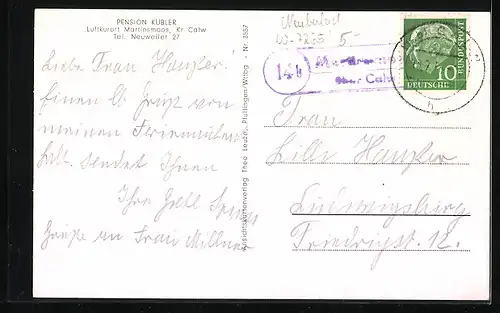 PENSION KÜBLER
Luftkurort Martinsmoos, Kr. Calw
Tel. Neuweiler 27
Liebe Frau Hanzler!
Einen lb. Gruß von
meinen Ferienaufent
halt sendet Ihnen
Ihre Gretl
Grüße an Frau Millner
Nr. 3557
Ansichtskartenverlag Theo Leuze, Pfullingen/Wttbg.
5-
14b
über Calw
10
DEUTSCHE
BUNDESPOST
h
Frau
Lilli Hanzler
Ludwigsburg
Friedrigst. 12.